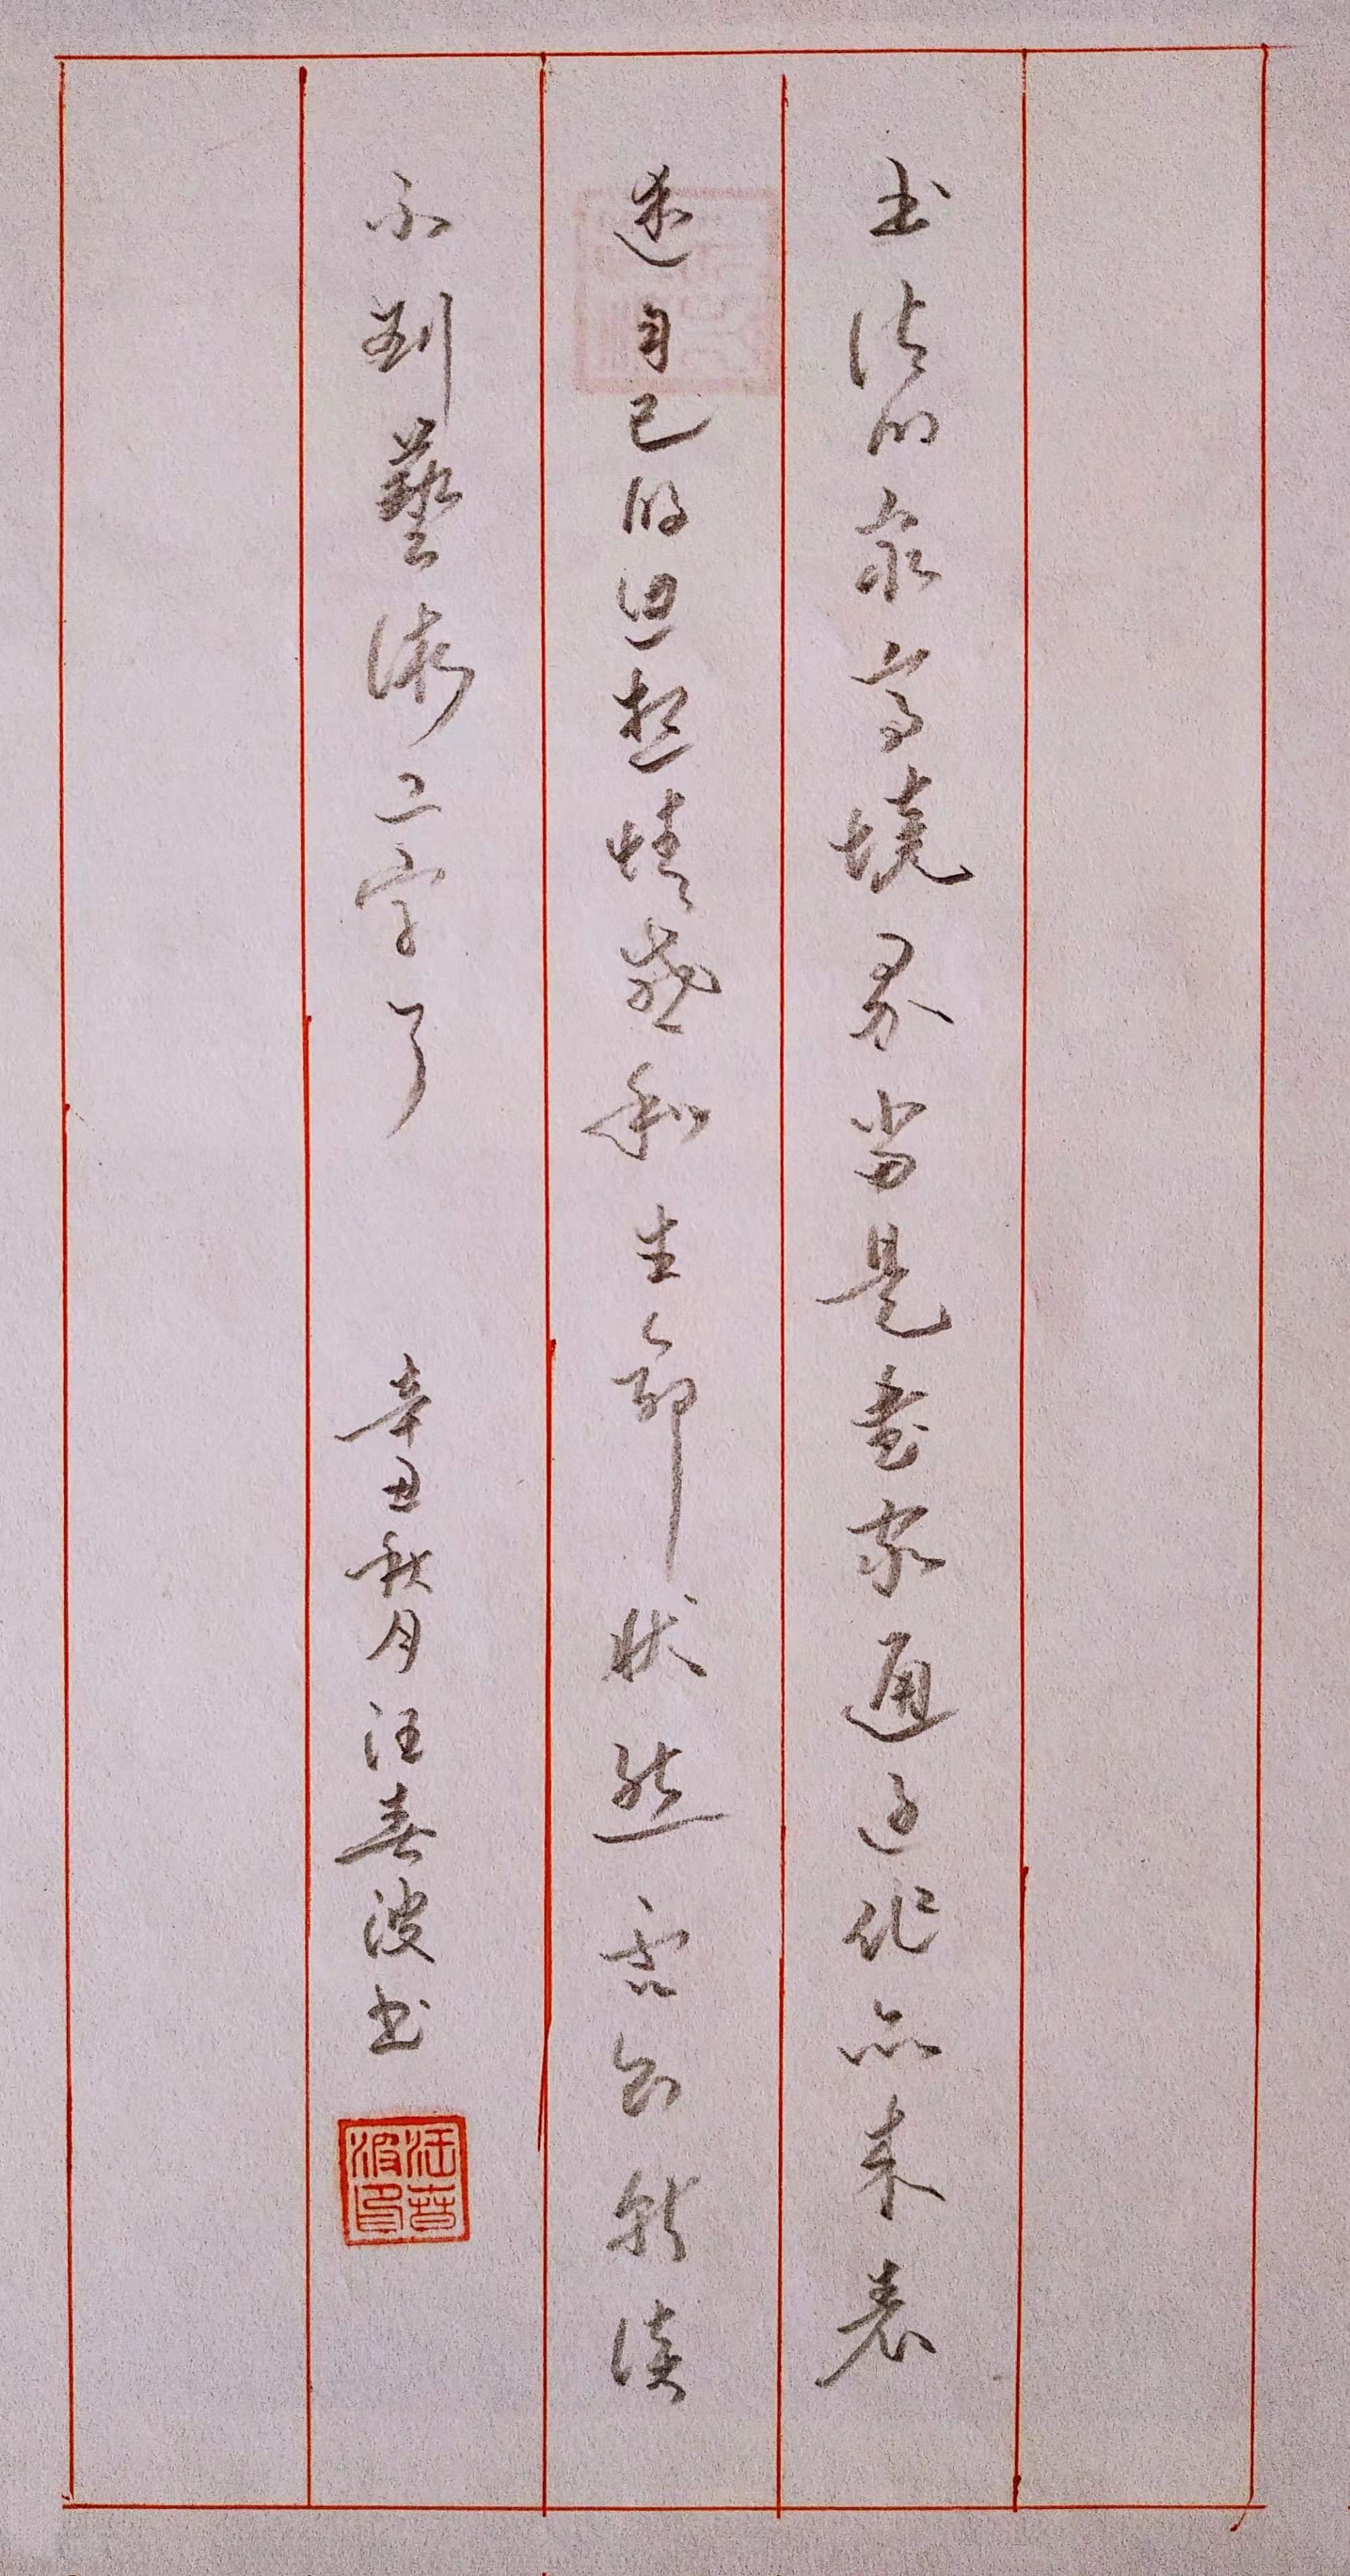 书法的最高境界当是书家通过作品来表
述自己的思想情感和生命状态否则就谈
不到藝術二字了
辛丑秋月汪春波书
汪春波印